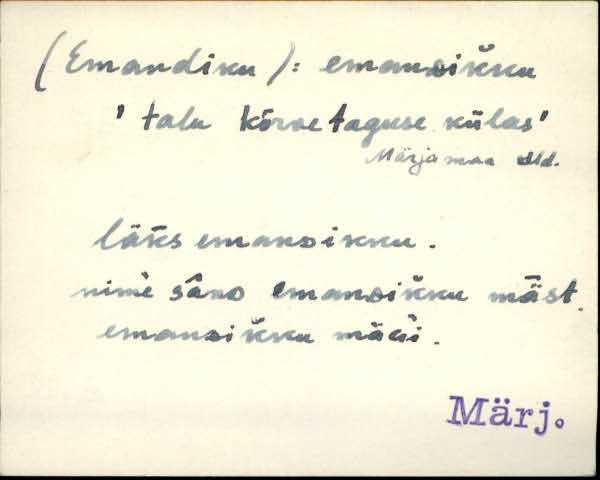 (Emandiku): emanᴅik̆ku
' talu Kõrvetaguse külas'
Märjamaa vld.
läks emanᴅikku.
nime sāno emanᴅik̆ku mäst.
emanᴅik̆ku mäɢi.
Märj.